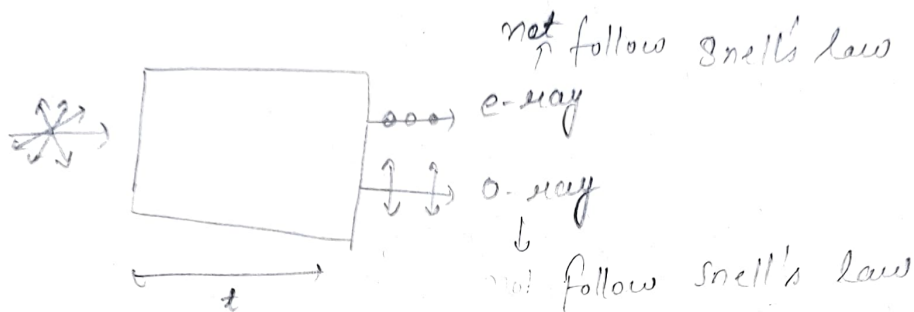 not
↑ follow Snell's law
e-ray
o-ray
↓
follow Snell's law
t